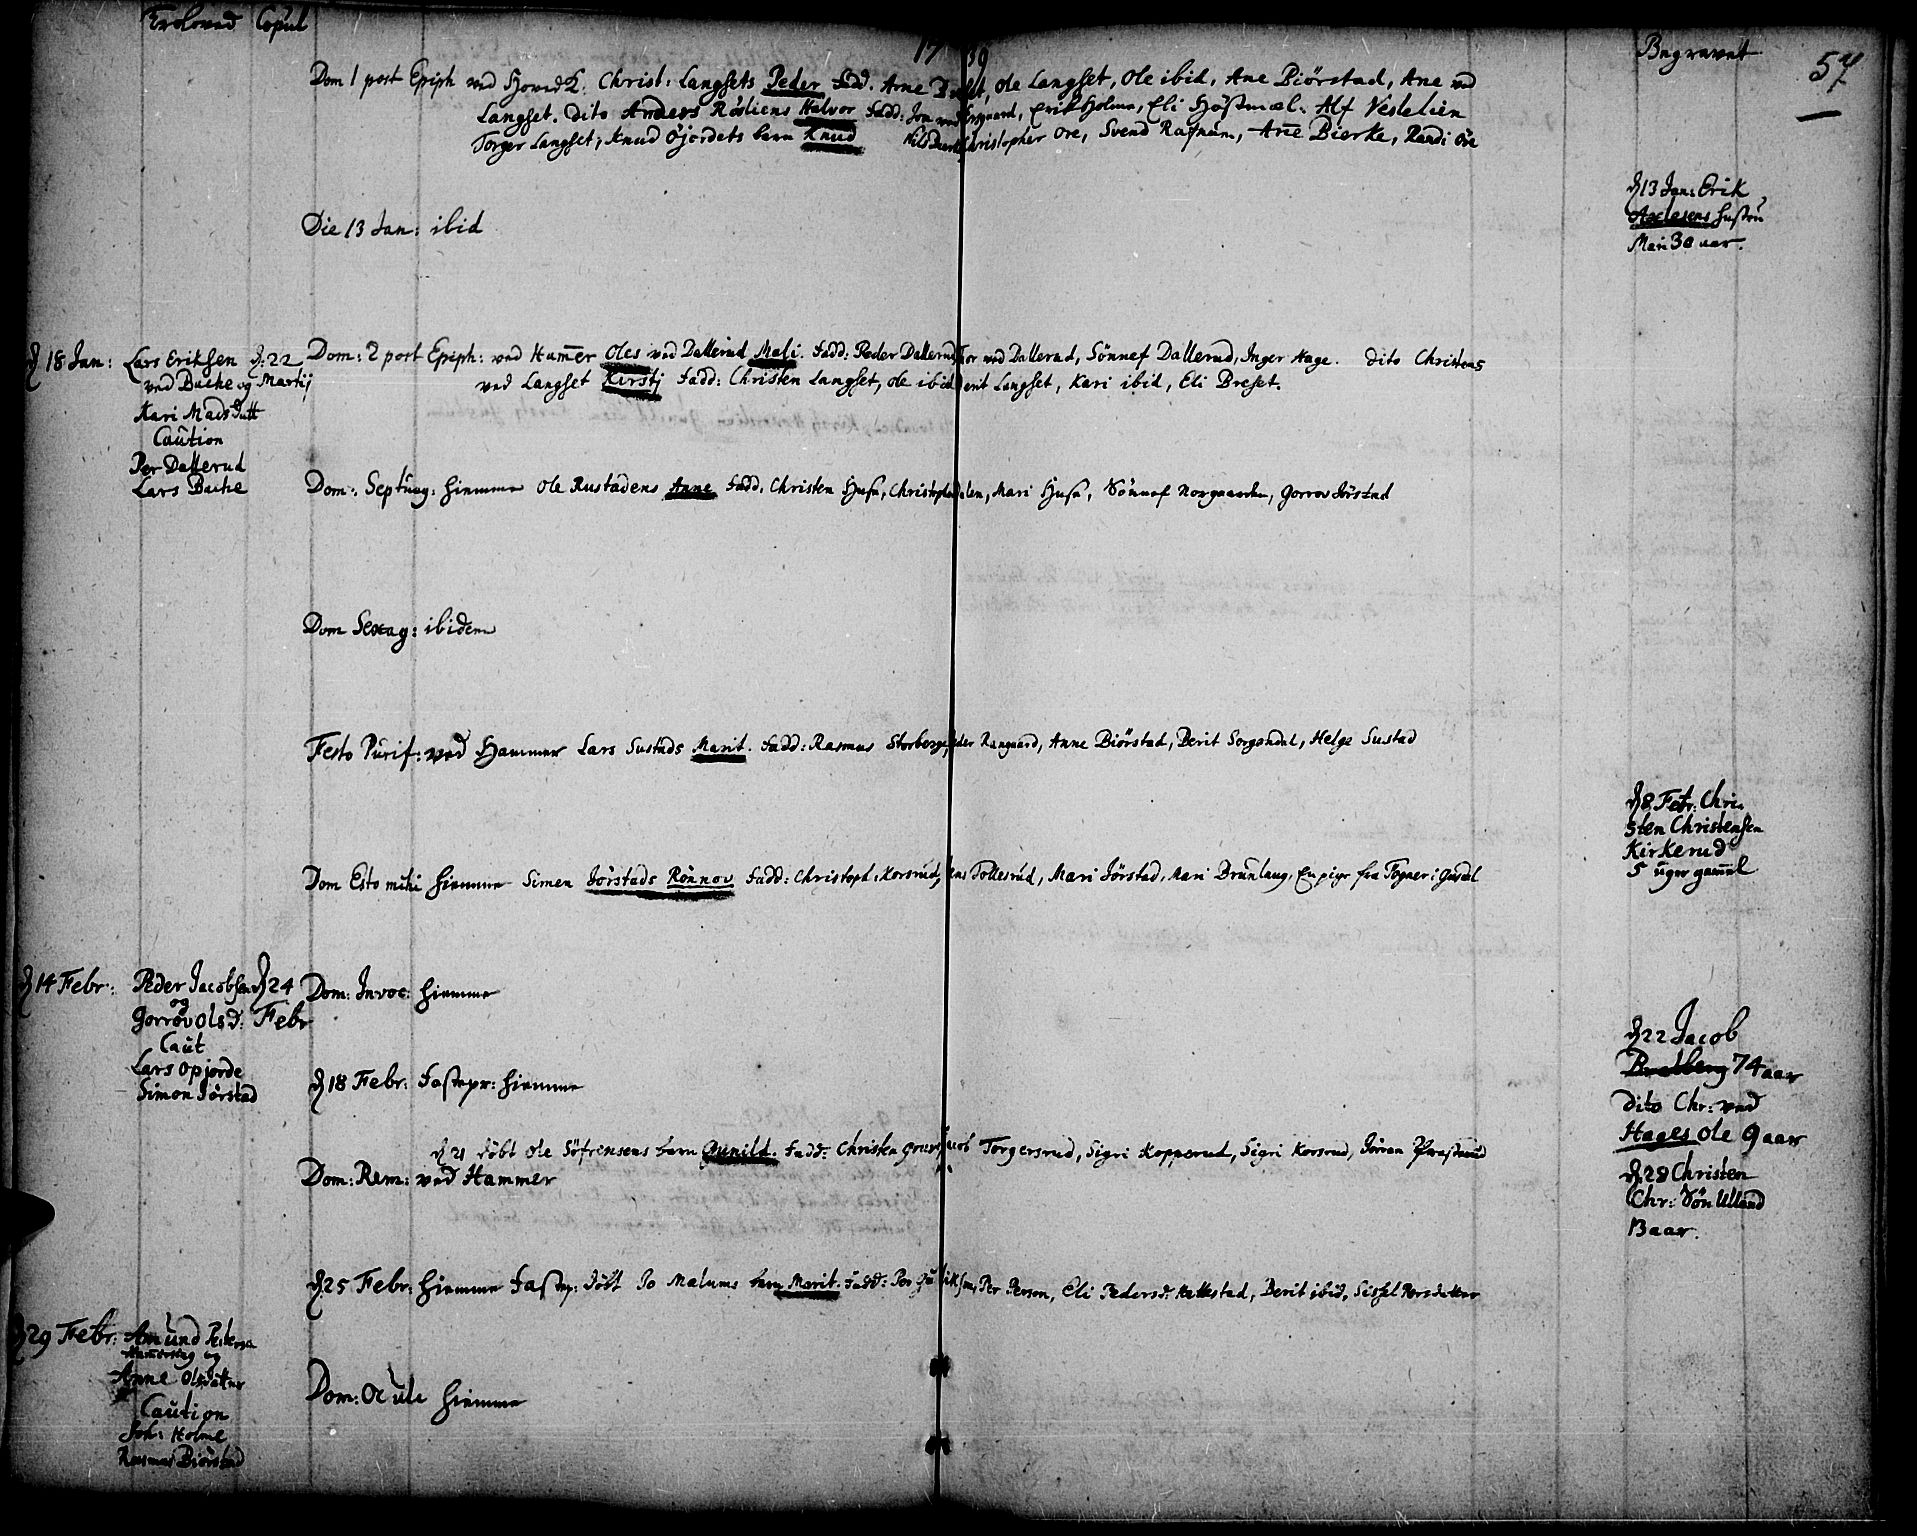 Troloved Copul
17 39
Begravet
57
Dom 1 post Epiph ved Hoved K: Christ: Langsets Peder fadd. Arne, Ole Langset, Ole ibid, Ane Biörstad, Ane ved
Langset. dito Anders Rösliens Halvor fadd: Jon ved, Erik Holme, Eli Höstmæl. Alf Veslelien
Torger Langset, Knud Öjordets barn Knud Christopher Ore, Svend Rafnum, Ane Bierke, Randi Öre
d 13 Jan: Erik
Axelsens hustru
Mari 30 aar.
Die 13 Jan: ibid
d 18 Jan: Lars Eriksen d: 22
ved Bache og Martij
Kari Madsdatt
Caution
Per Dallerud
Lars Bache
Dom: 2 post Epiph: ved Hamer Oles ved Dallerud Mali. fadd: Peder Dallerud, Tor ved Dallerud, Sönnef Dallerud, Inger Hage. dito Christens
ved Langset Kirstj fadd: Christen Langset, Ole ibid, Berit Langset, Kari ibid, Eli Breset.
Dom: Septuag: hiemme Ole Rustadens Anne fadd. Christen Husa, Christopher Dalen, Mari Husa, Sönnef Norgaarden, Gorrov Jörstad
Dom Sexag: ibidem
Festo Purif: ved Hammer Lars Sustads Marit. fadd: Rasmus Storberge, Peder Rangaard, Anne Biörstad, Berit Sorgendal, Helge Sustad
d 8 Febr: Chri-
sten Christensen
Kirkerud
5 uger gamel
Dom Esto mihi hiemme Simen Jörstads Rönnov fadd: Christoph: Korsrud, Jens Tollesrud, Mari Jörstad, Mari Brunlaug, En pige fra Fogner i Gusdal
d 14 Febr: Peder Jacobsen d 24
og
Gorrov Olsd: Febr
Caut
Lars Opjorde
Simon Jörstad
Dom: Invoc: hiemme
d 18 Febr: Fastepr: hiemme
d 22 Jacob
Bratberg 74 aar
dito Chr: ved
Hages Ole 9 aar
d 28 Christen
Chr: Sön Ulland
13 aar.
d 21 döbt Ole Söfrensens barn Gunild. fadd: Christen, Jacob Torgersrud, Sigri Kopperud, Sigri Korsrud, Jörran
Dom: Rem: ved Hammer
d 25 Febr: hiemme Fastep: döbt Jo Malums barn Marit. fadd: Per Guliksen, Per Person, Eli Pedersd: Hattestad, Berit ibid, Sissel Persdatter
d 29 Febr: Amund Pedersen
og
Anne Olsdatter
Caution
Joh: Holme
Rasmus Biörstad
Dom: Oculi hiemme